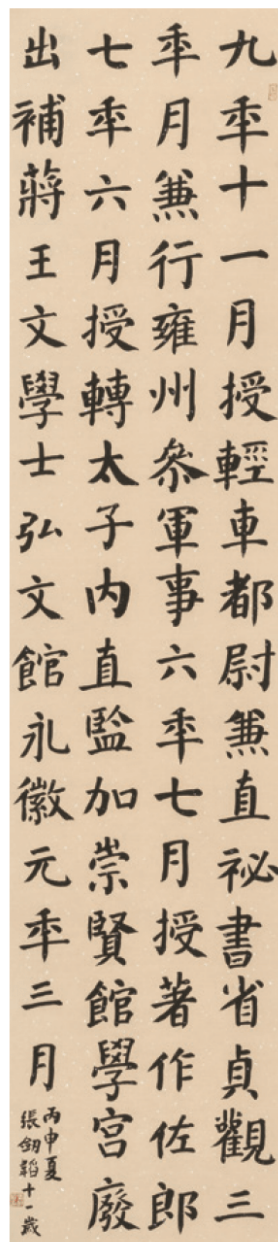 九年十一月授輕車都尉兼直祕書省貞觀三
年月兼行雍州參軍事六年七月授著作佐郎
七年六月授轉太子內直監加崇賢館學宮廢
出補蔣王文學士弘文館永徽元年三月
丙申夏
張劍韜十一歲